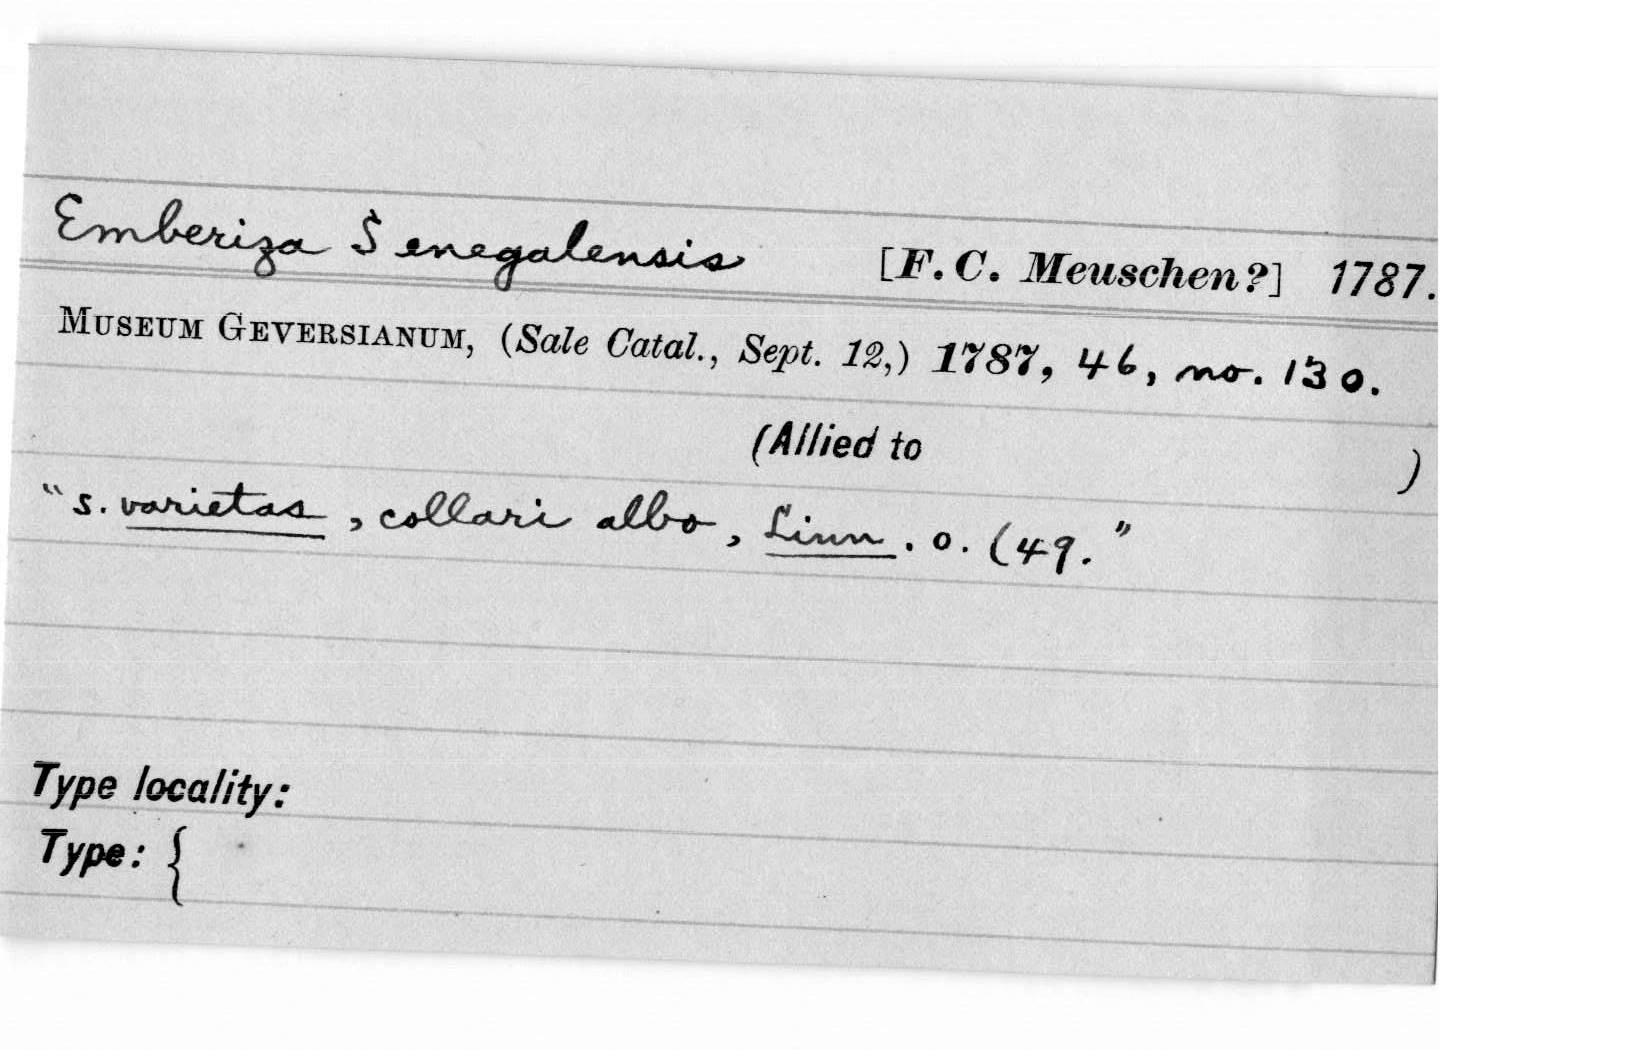 Emberiza Senegalensis [F. C. Meuschen?] 1787.
Museum Geversianum, (Sale Catal., Sept. 12,) 1787, 46, no. 130.
(Allied to )
"s. varietas, collari albo, Linn. o. (49."
Type locality:
Type: {